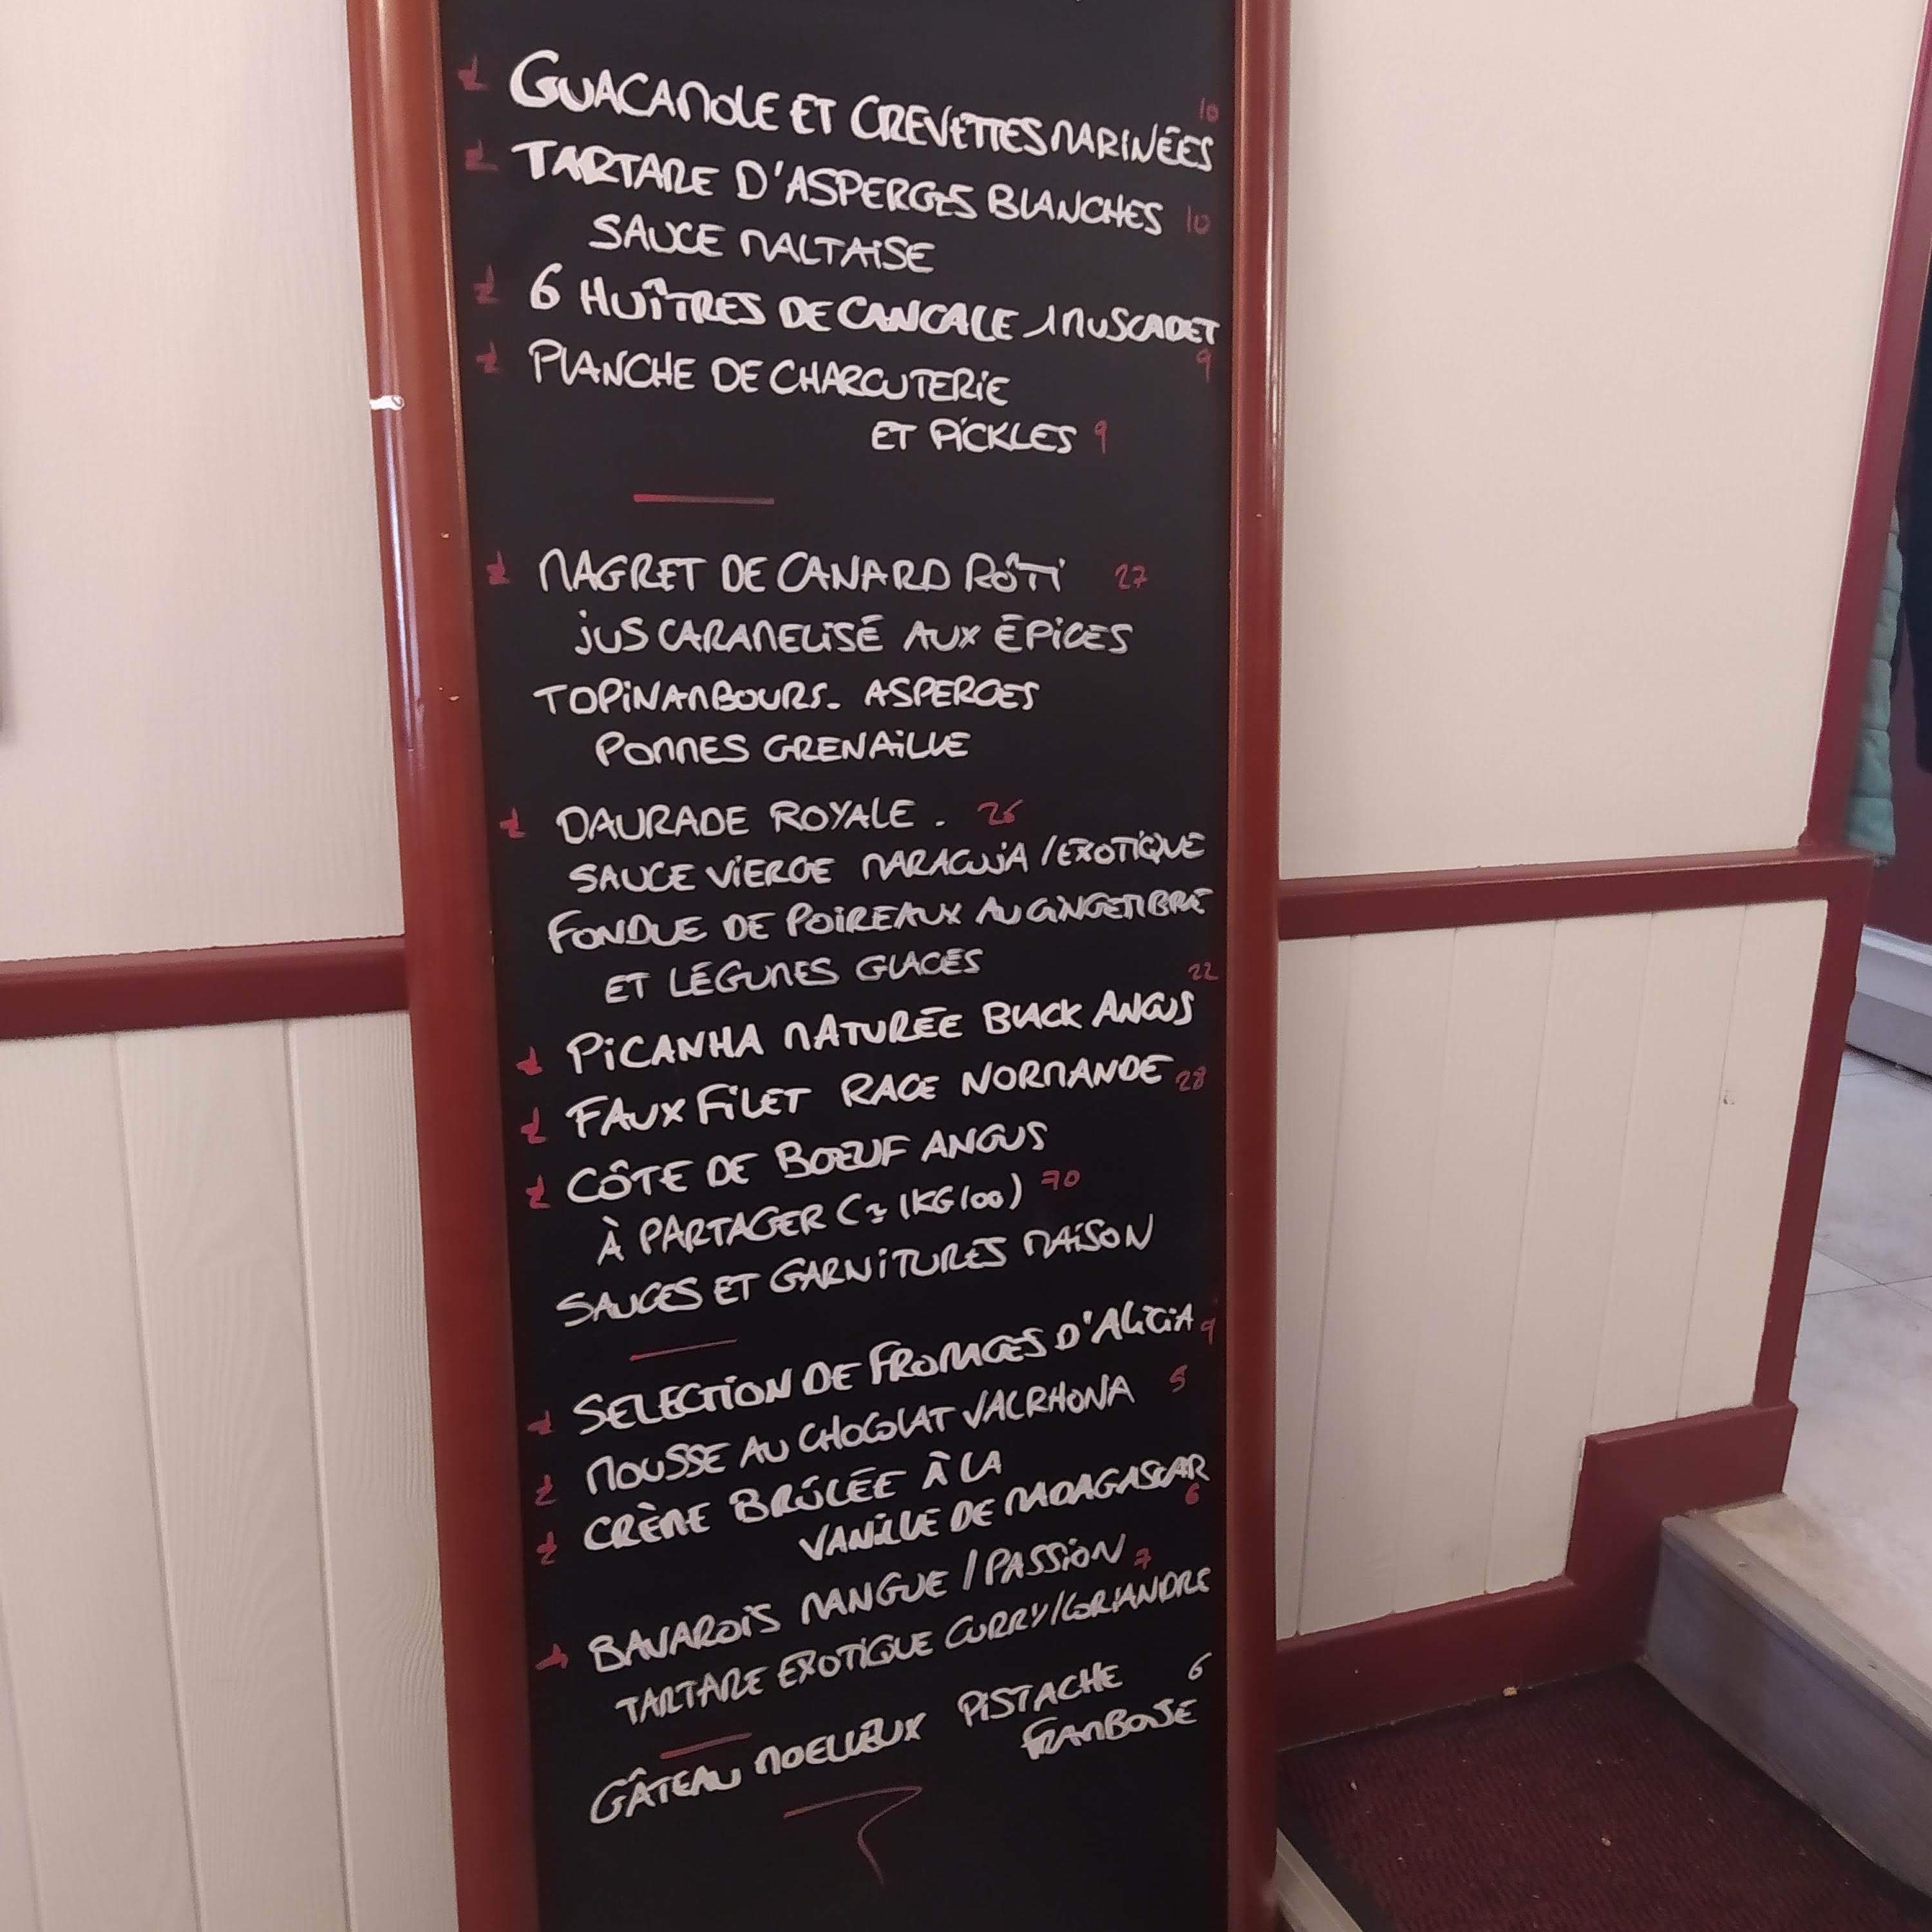 GUACAMOLE ET CREVETTES MARINÉES 10
TARTARE D'ASPERGES BLANCHES 10
SAUCE MALTAISE
6 HUÎTRES DE CANCALE 1 MUSCADET 9
PLANCHE DE CHARCUTERIE
ET PICKLES 9
MAGRET DE CANARD RÔTI 27
JUS CARAMELISÉ AUX ÉPICES
TOPINAMBOURS. ASPERGES
POMMES GRENAILLE
DAURADE ROYALE . 26
SAUCE VIERGE MARACUJA / EXOTIQUE
FONDUE DE POIREAUX AU GINGEMBRE
ET LÉGUMES GLACES
PICANHA MATURÉE BLACK ANGUS 22
FAUX FILET RACE NORMANDE 28
CÔTE DE BOEUF ANGUS
À PARTAGER (± 1KG100) 70
SAUCES ET GARNITURES MAISON
SELECTION DE FROMAGES D'ALICIA 9
MOUSSE AU CHOCOLAT VALRHONA 5
CRÈME BRÛLÉE À LA
VANILLE DE MADAGASCAR 6
BAVAROIS MANGUE / PASSION 7
TARTARE EXOTIQUE CURRY/CORIANDRE
GÂTEAU MOELLEUX PISTACHE 6
FRAMBOISE